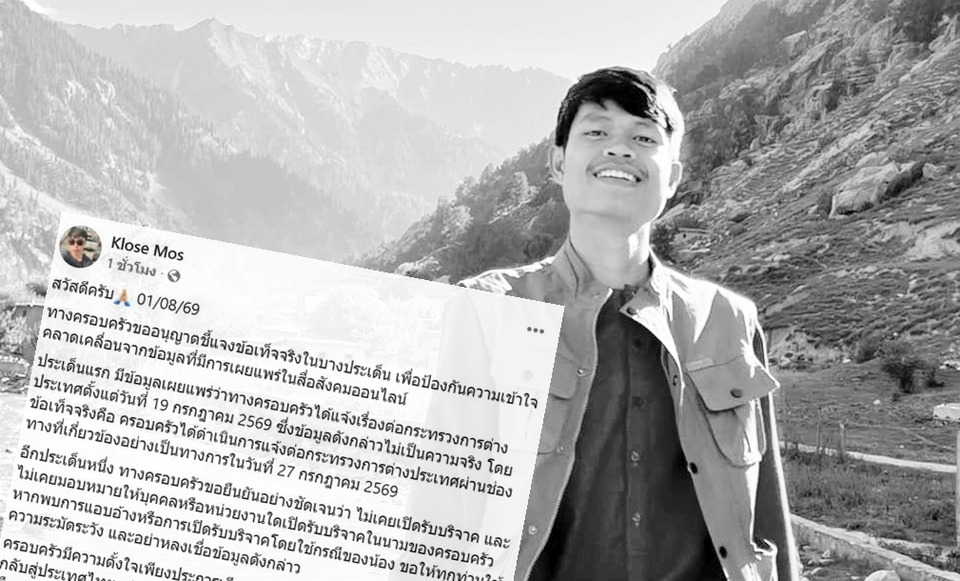 Klose Mos
1 ชั่วโมง ·
สวัสดีครับ🙏 01/08/69
ทางครอบครัวขออนุญาตชี้แจงข้อเท็จจริงในบางประเด็น เพื่อป้องกันความเข้าใจ
คลาดเคลื่อนจากข้อมูลที่มีการเผยแพร่ในสื่อสังคมออนไลน์
ประเด็นแรก มีข้อมูลเผยแพร่ว่าทางครอบครัวได้แจ้งเรื่องต่อกระทรวงการต่าง
ประเทศตั้งแต่วันที่ 19 กรกฎาคม 2569 ซึ่งข้อมูลดังกล่าวไม่เป็นความจริง โดย
ข้อเท็จจริงคือ ครอบครัวได้ดำเนินการแจ้งต่อกระทรวงการต่างประเทศผ่านช่อง
ทางที่เกี่ยวข้องอย่างเป็นทางการในวันที่ 27 กรกฎาคม 2569
อีกประเด็นหนึ่ง ทางครอบครัวขอยืนยันอย่างชัดเจนว่า ไม่เคยเปิดรับบริจาค และ
ไม่เคยมอบหมายให้บุคคลหรือหน่วยงานใดเปิดรับบริจาคในนามของครอบครัว
หากพบการแอบอ้างหรือการเปิดรับบริจาคโดยใช้กรณีของน้อง ขอให้ทุกท่านใช้
ความระมัดระวัง และอย่าหลงเชื่อข้อมูลดังกล่าว
ครอบครัวมีความตั้งใจเพียงประการ
กลับสู่ประเทศไทย